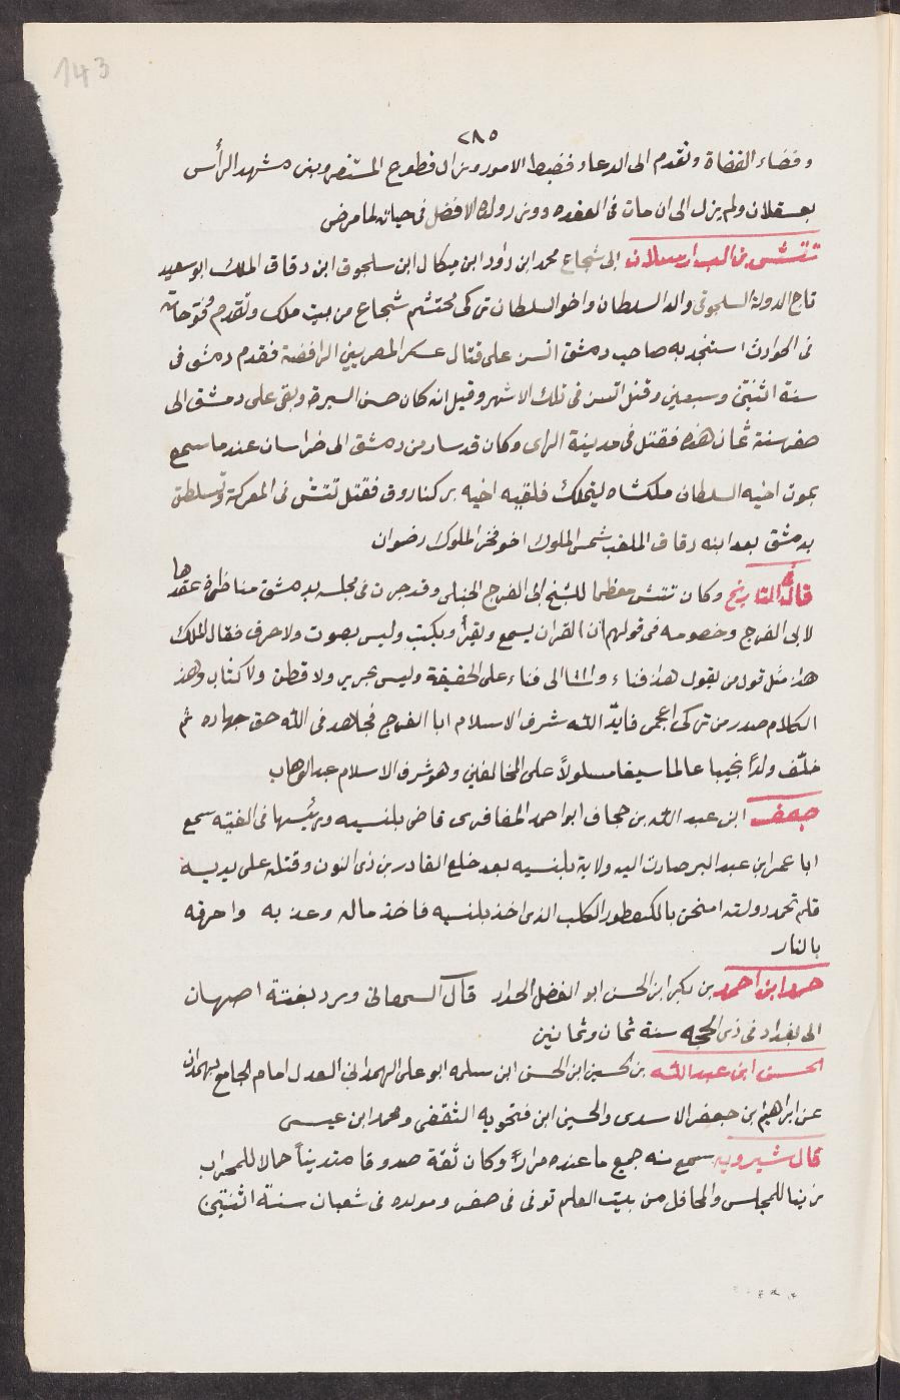 143
٢٨٥
وقضاء القضاة وتقدم الى الدعاء فضبط الامور وزال قطوع المستنصر وبنى مشهد الرأس
بعسقلان ولم يزل الى ان مات فى القعده ووزر ولده الافضل فى حياته لما مرض
تتش بن الب ارسلان ابى شجاع محمد ابن داود ابن ميكال ابن سلجوق ابن دقاق الملك ابو سعيد
تاج الدولة السلجوقى والد السلطان واخو السلطان تركى محتشم شجاع من بيت ملك وتقدم فتوحاته
فى الحوادث استنجد به صاحب دمشق اتسز على قتال عسكر المصريين الرافضة فقدم دمشق فى
سنة اثنتين وسبعين وقتل اتسز فى تلك الاشهر وقيل انه كان حسن السيرة وبقى على دمشق الى
صفر سنة ثمان هذه فقتل فى مدينة الراى وكان قد سار من دمشق الى خراسان عندما سمع
بموت اخيه السلطان ملكشاه ليتملك فلقيه اخيه بركناروق فقتل تتش فى المعركة وتسلطن
بدمشق بعد ابنه دقاق الملقب شمس الملوك اخو فخر الملوك رضوان
قال التاريخ وكان تتش معظما للشيخ ابى الفرج الحنبلى وقد جرت فى مجلسه بدمشق مناظرة عقدها
لابى الفرج وخصومه فى قولهم ان القران يسمع ويقرأ ويكتب وليس بصوت ولا حرف فقال الملك
هذا مثل قول من يقول هذا قباء واشار الى قباء على الحقيقة وليس بحرير ولا قطن ولا كتان وهذ
الكلام صدر من تركى اعجمى فايّد الله شرف الاسلام ابا الفرج فجاهد فى الله حق جهاده ثم
خلّف ولدًا نجيبا عالما سيفا مسلولاً على المخالفين وهو شرف الاسلام عبد الوهاب
جعفر ابن عبد الله بن حجاف ابو احمد المغافرى قاضى بلنسيه ورئيسها فى الفتيه سمع
ابا عمر ابن عبد البر صارت اليه ولاية بلنسيه بعد خلع القادر بن ذى النون وقتله على يديه
فلم تحمد دولته امتحن بالكنبطور الكلب الذى اخذ بلنسيه فاخذ ماله وعذبه واحرقه
بالنار
حمد ابن احمد بن بكر ابن الحسن ابو الفضل الحداد قال السمعانى ورد بغتة اصبهان
الى بغداد فى ذى الحجه سنة ثمان وثمانين
الحسن ابن عبد الله بن الحسين ابن الحسن ابن سلمه ابو على الهمدانى العدل امام الجامع بهمدان
عن ابراهيم بن جعفر الاسدى والحسين ابن فتحويه الثقفى ومحمد ابن عيسى
قال شيرويه سمع منه جميع ما عنده مرارًا وكان ثقة صدوقا متدينًا جمالا للمحراب
زينا للمجلس والمحافل من بيت العلم توفى فى صفر ومولده فى شعبان سنة اثنتين